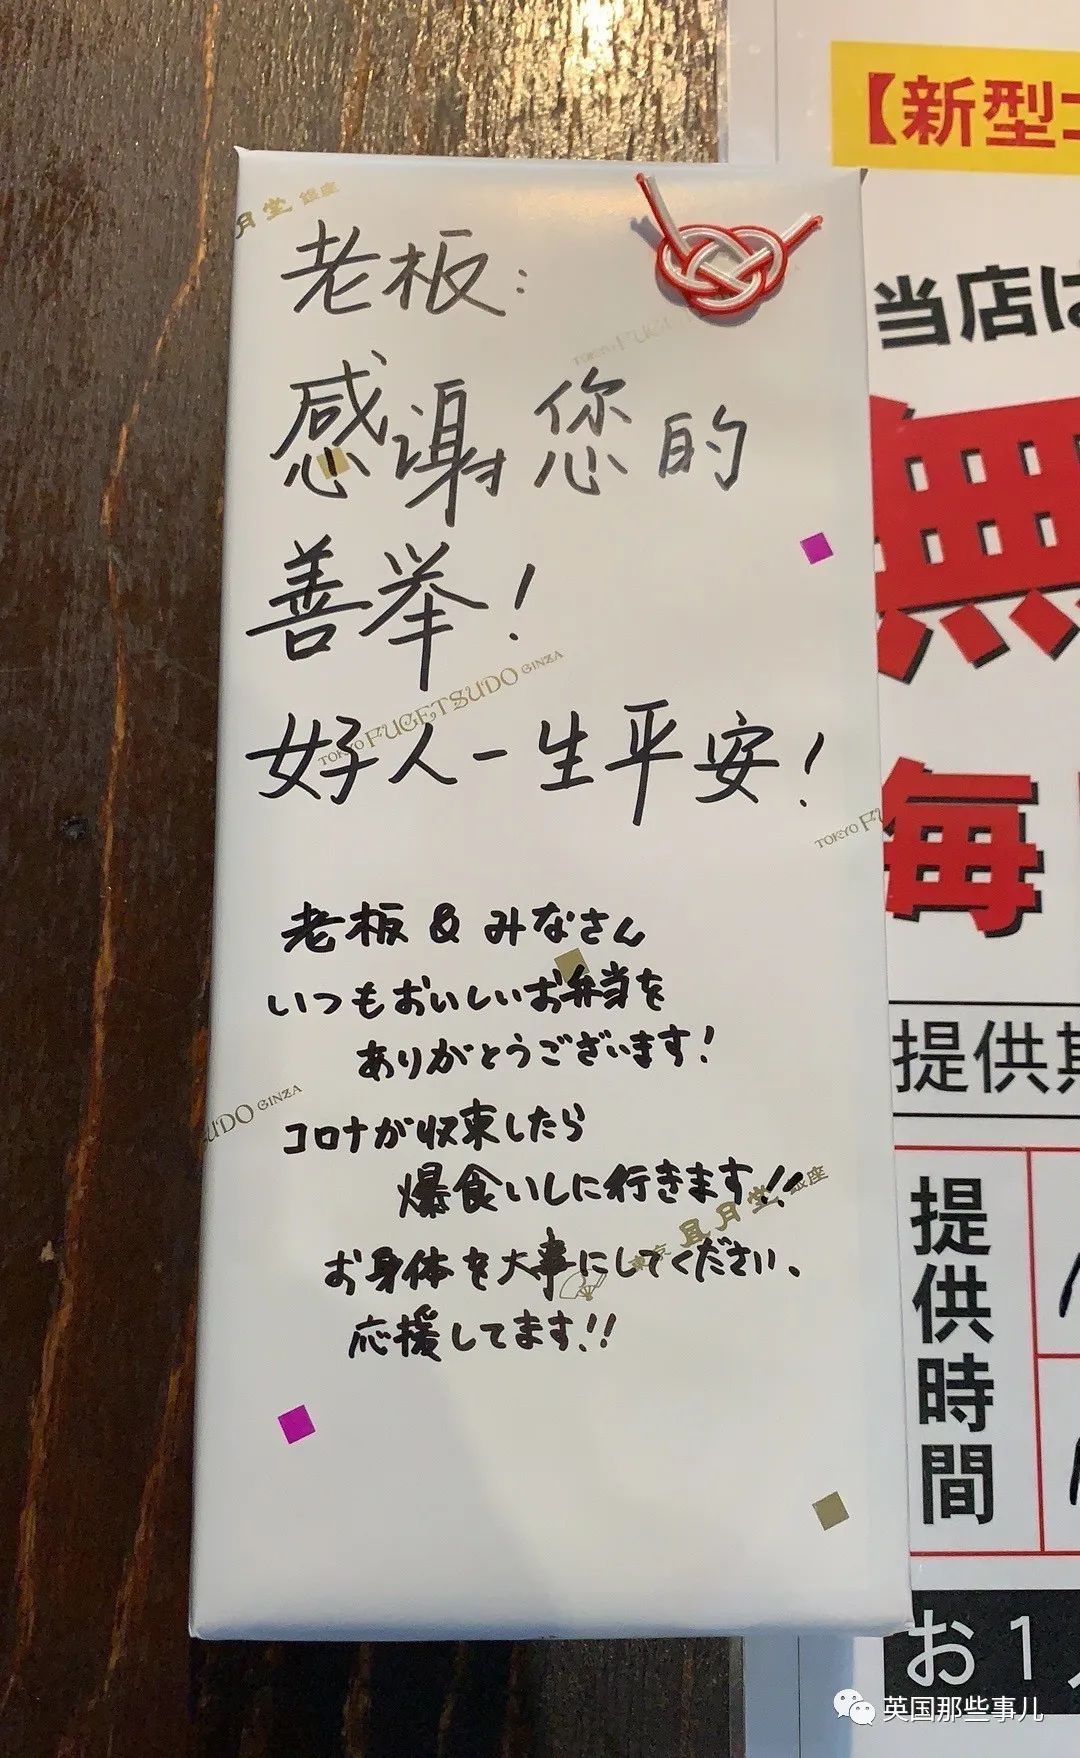 月堂 銀座
老板：
感谢您的
善举！
好人一生平安！
TOKYO FUGETSUDO GINZA
老板 & みなさん
いつもおいしいお弁当を
ありがとうございます！
コロナが収束したら
爆食いしに行きます!!
お身体を大事にしてください、
応援してます!!
TOKYO FU
UDO GINZA
月堂 銀座
【新型コ
当店は
無
毎
提供期
提供時間
お1人
英国那些事儿